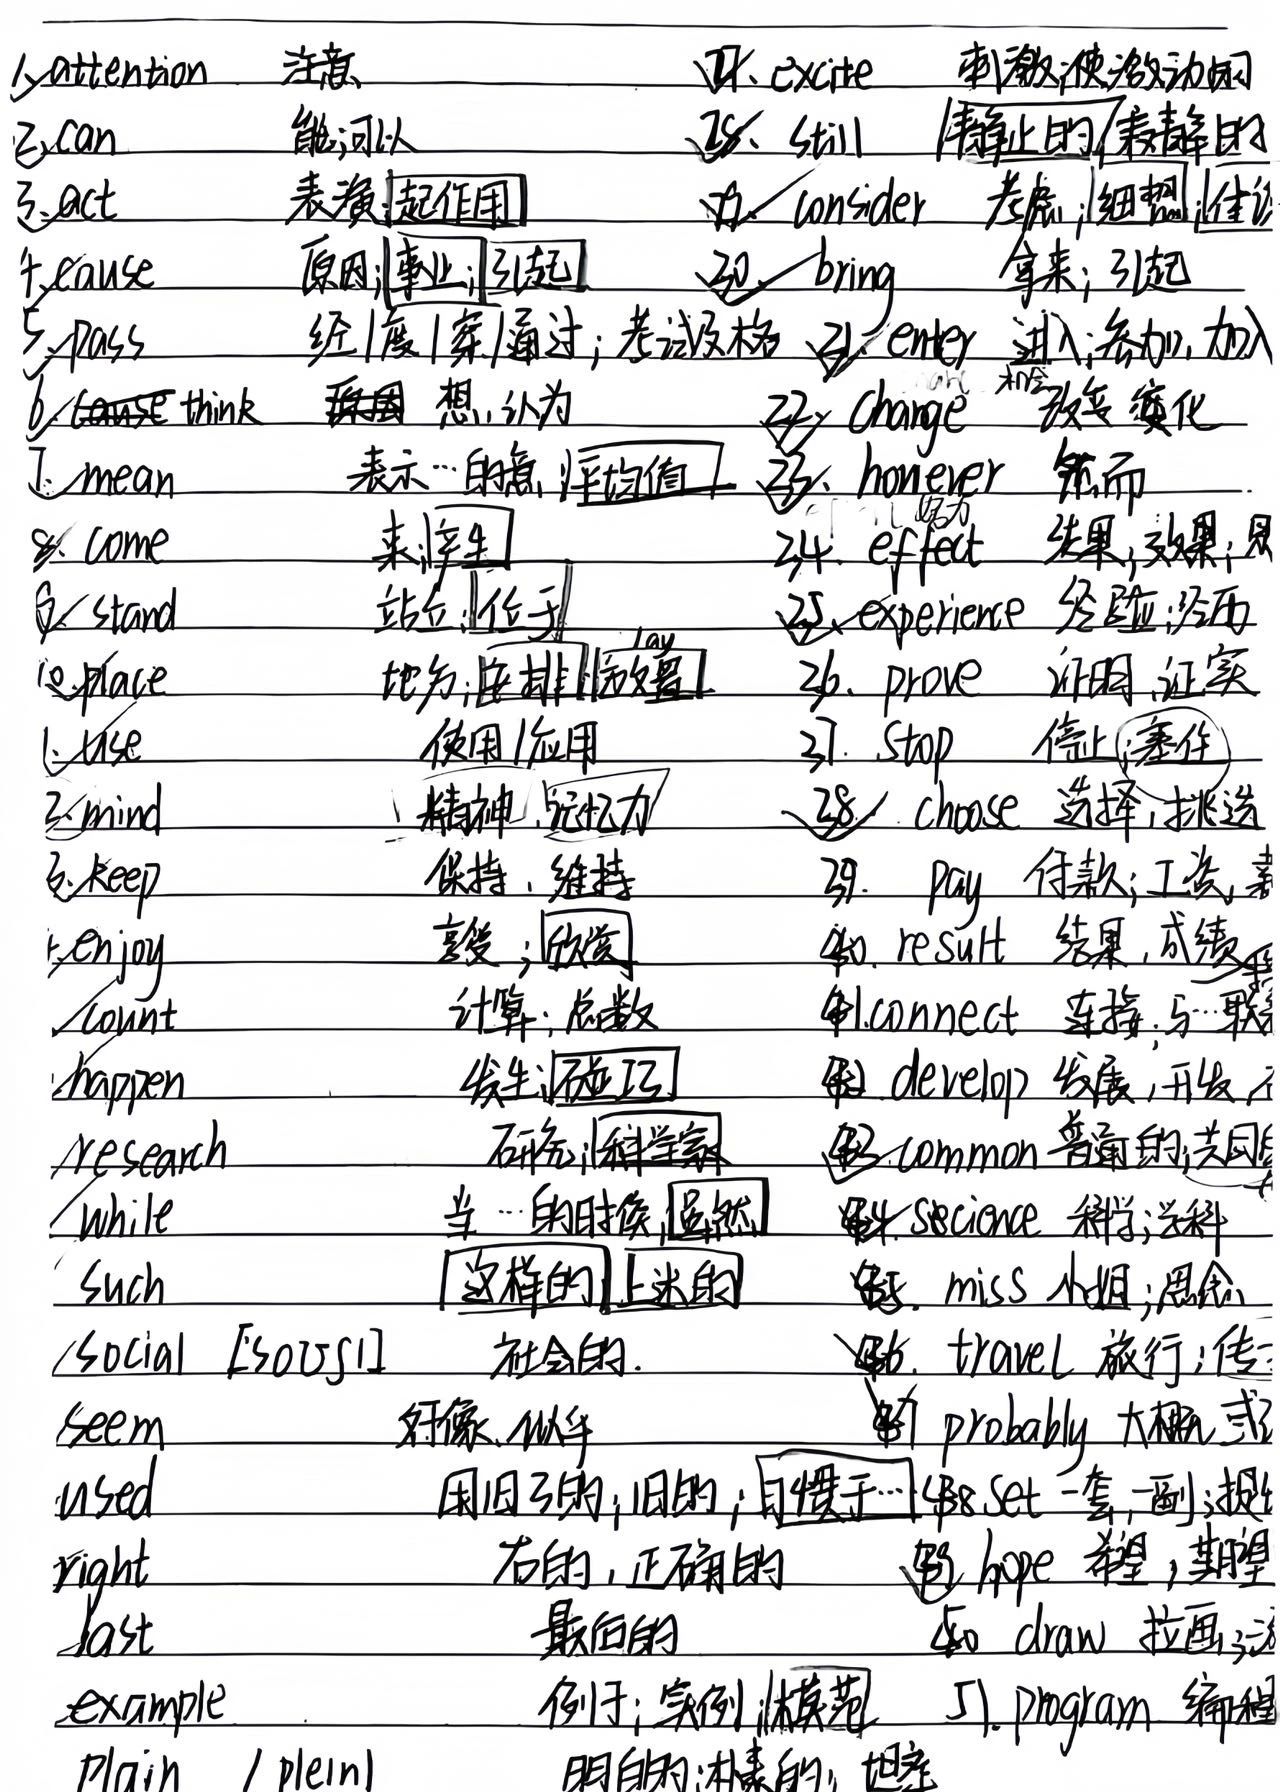 1. attention 注意
2. can 能;可以
3. act 表演;起作用
4. cause 原因;事业;引起
5. pass 经/度/穿/通过;考试及格
6. cause think 原因 想,认为
7. mean 表示…的意;平均值
8. come 来;产生
9. stand 站立;位于
lay
10. place 地方;安排;放置
1. use 使用/应用
2. mind 精神,记忆力
3. keep 保持,维持
enjoy 享受;欣赏
count 计算;总数
happen 发生;碰巧
research 研究;科学家
while 当…的时候,虽然
such 这样的 上述的
social [ˈsoʊʃl] 社会的.
seem 好像,似乎
used 用旧了的;旧的;习惯于…
right 右的,正确的
last 最后的
example 例子;实例;模范
plain /plein/ 明白的;朴素的;坦率
excite 刺激;使激动的
still 静止的/寂静的
consider 考虑;细想;
30. bring 拿来;引起
31. enter 进入;参加,加入
机会
32. change 改变 变化
33. however 然而
努力
34. effect 结果;效果;
35. experience 经验;经历
36. prove 证明,证实
37. stop 停止;塞住
38. choose 选择,挑选
39. pay 付款;工资,薪
40. result 结果,成绩
41. connect 连接;与…联系
42. develop 发展,开发,
43. common 普通的;共同
44. secience 科学;学科
45. miss 小姐;思念
46. travel 旅行;传
47 probably 大概 或
48 set 一套,一副;提
49 hope 希望,期望
50 draw 拉画;
51. program 编程